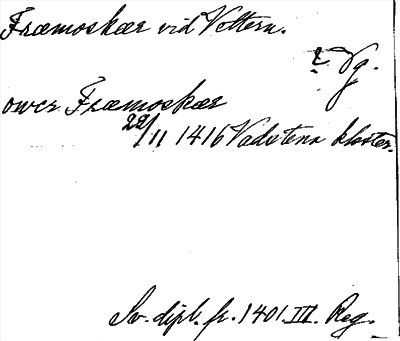 Fræmoskær vid Vettern.
r Vg.
ower Fræmoskær
22/11 1416 Vadstena kloster.
Sv. dipl. fr. 1401. III. Reg.